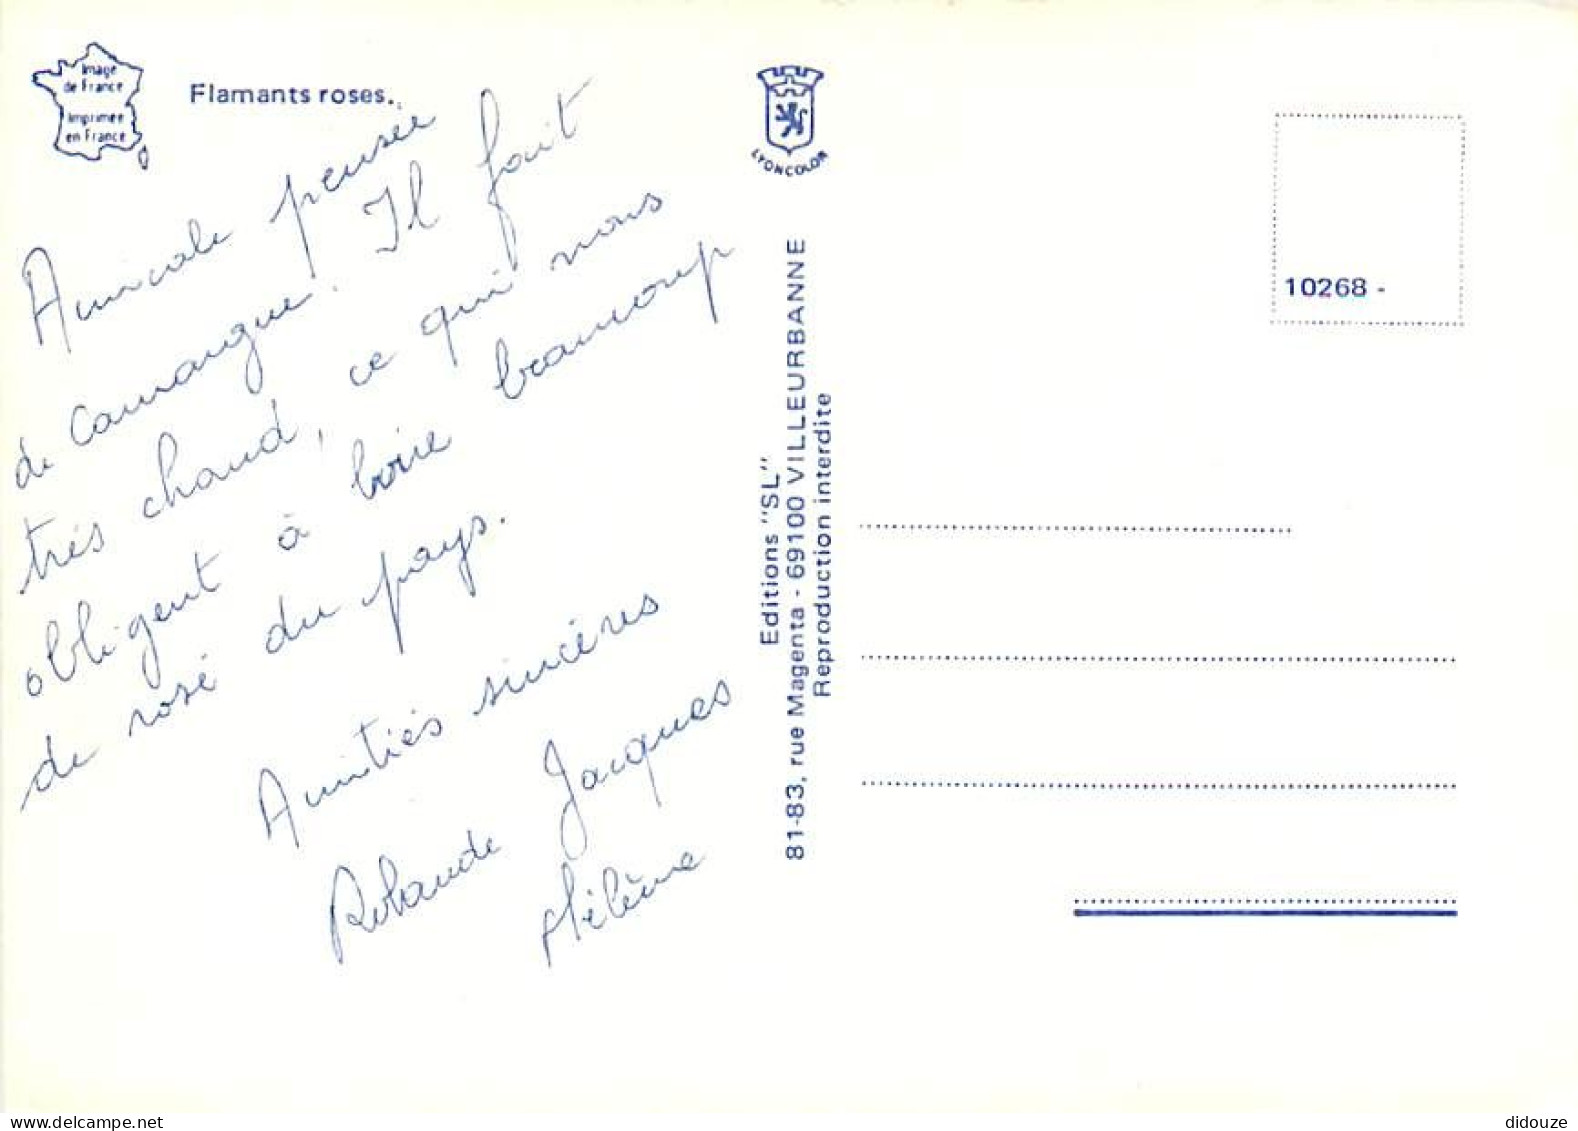 Image
de France
Imprimée
en France
Flamants roses.
Amicale pensée
de Camargue. Il fait
très chaud, ce qui nous
obligent à boire beaucoup
de rosé du pays.
Amitiés sincères
Rolande Jacques
Hélène
LYONCOLOR
Editions "SL"
81-83, rue Magenta - 69100 VILLEURBANNE
Reproduction interdite
10268 -
delcampe.net
didouze